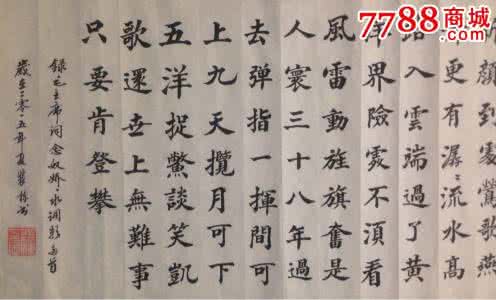 7788商城
顏到處鶯歌燕
更有潺〻流水高
路入雲端過了黃
洋界險處不須看
風雷動旌旗奮是
人寰三十八年過
去彈指一揮間可
上九天攬月可下
五洋捉鱉談笑凱
歌還世上無難事
只要肯登攀
錄毛主席词念奴娇水调歌
歲在二零一五年夏